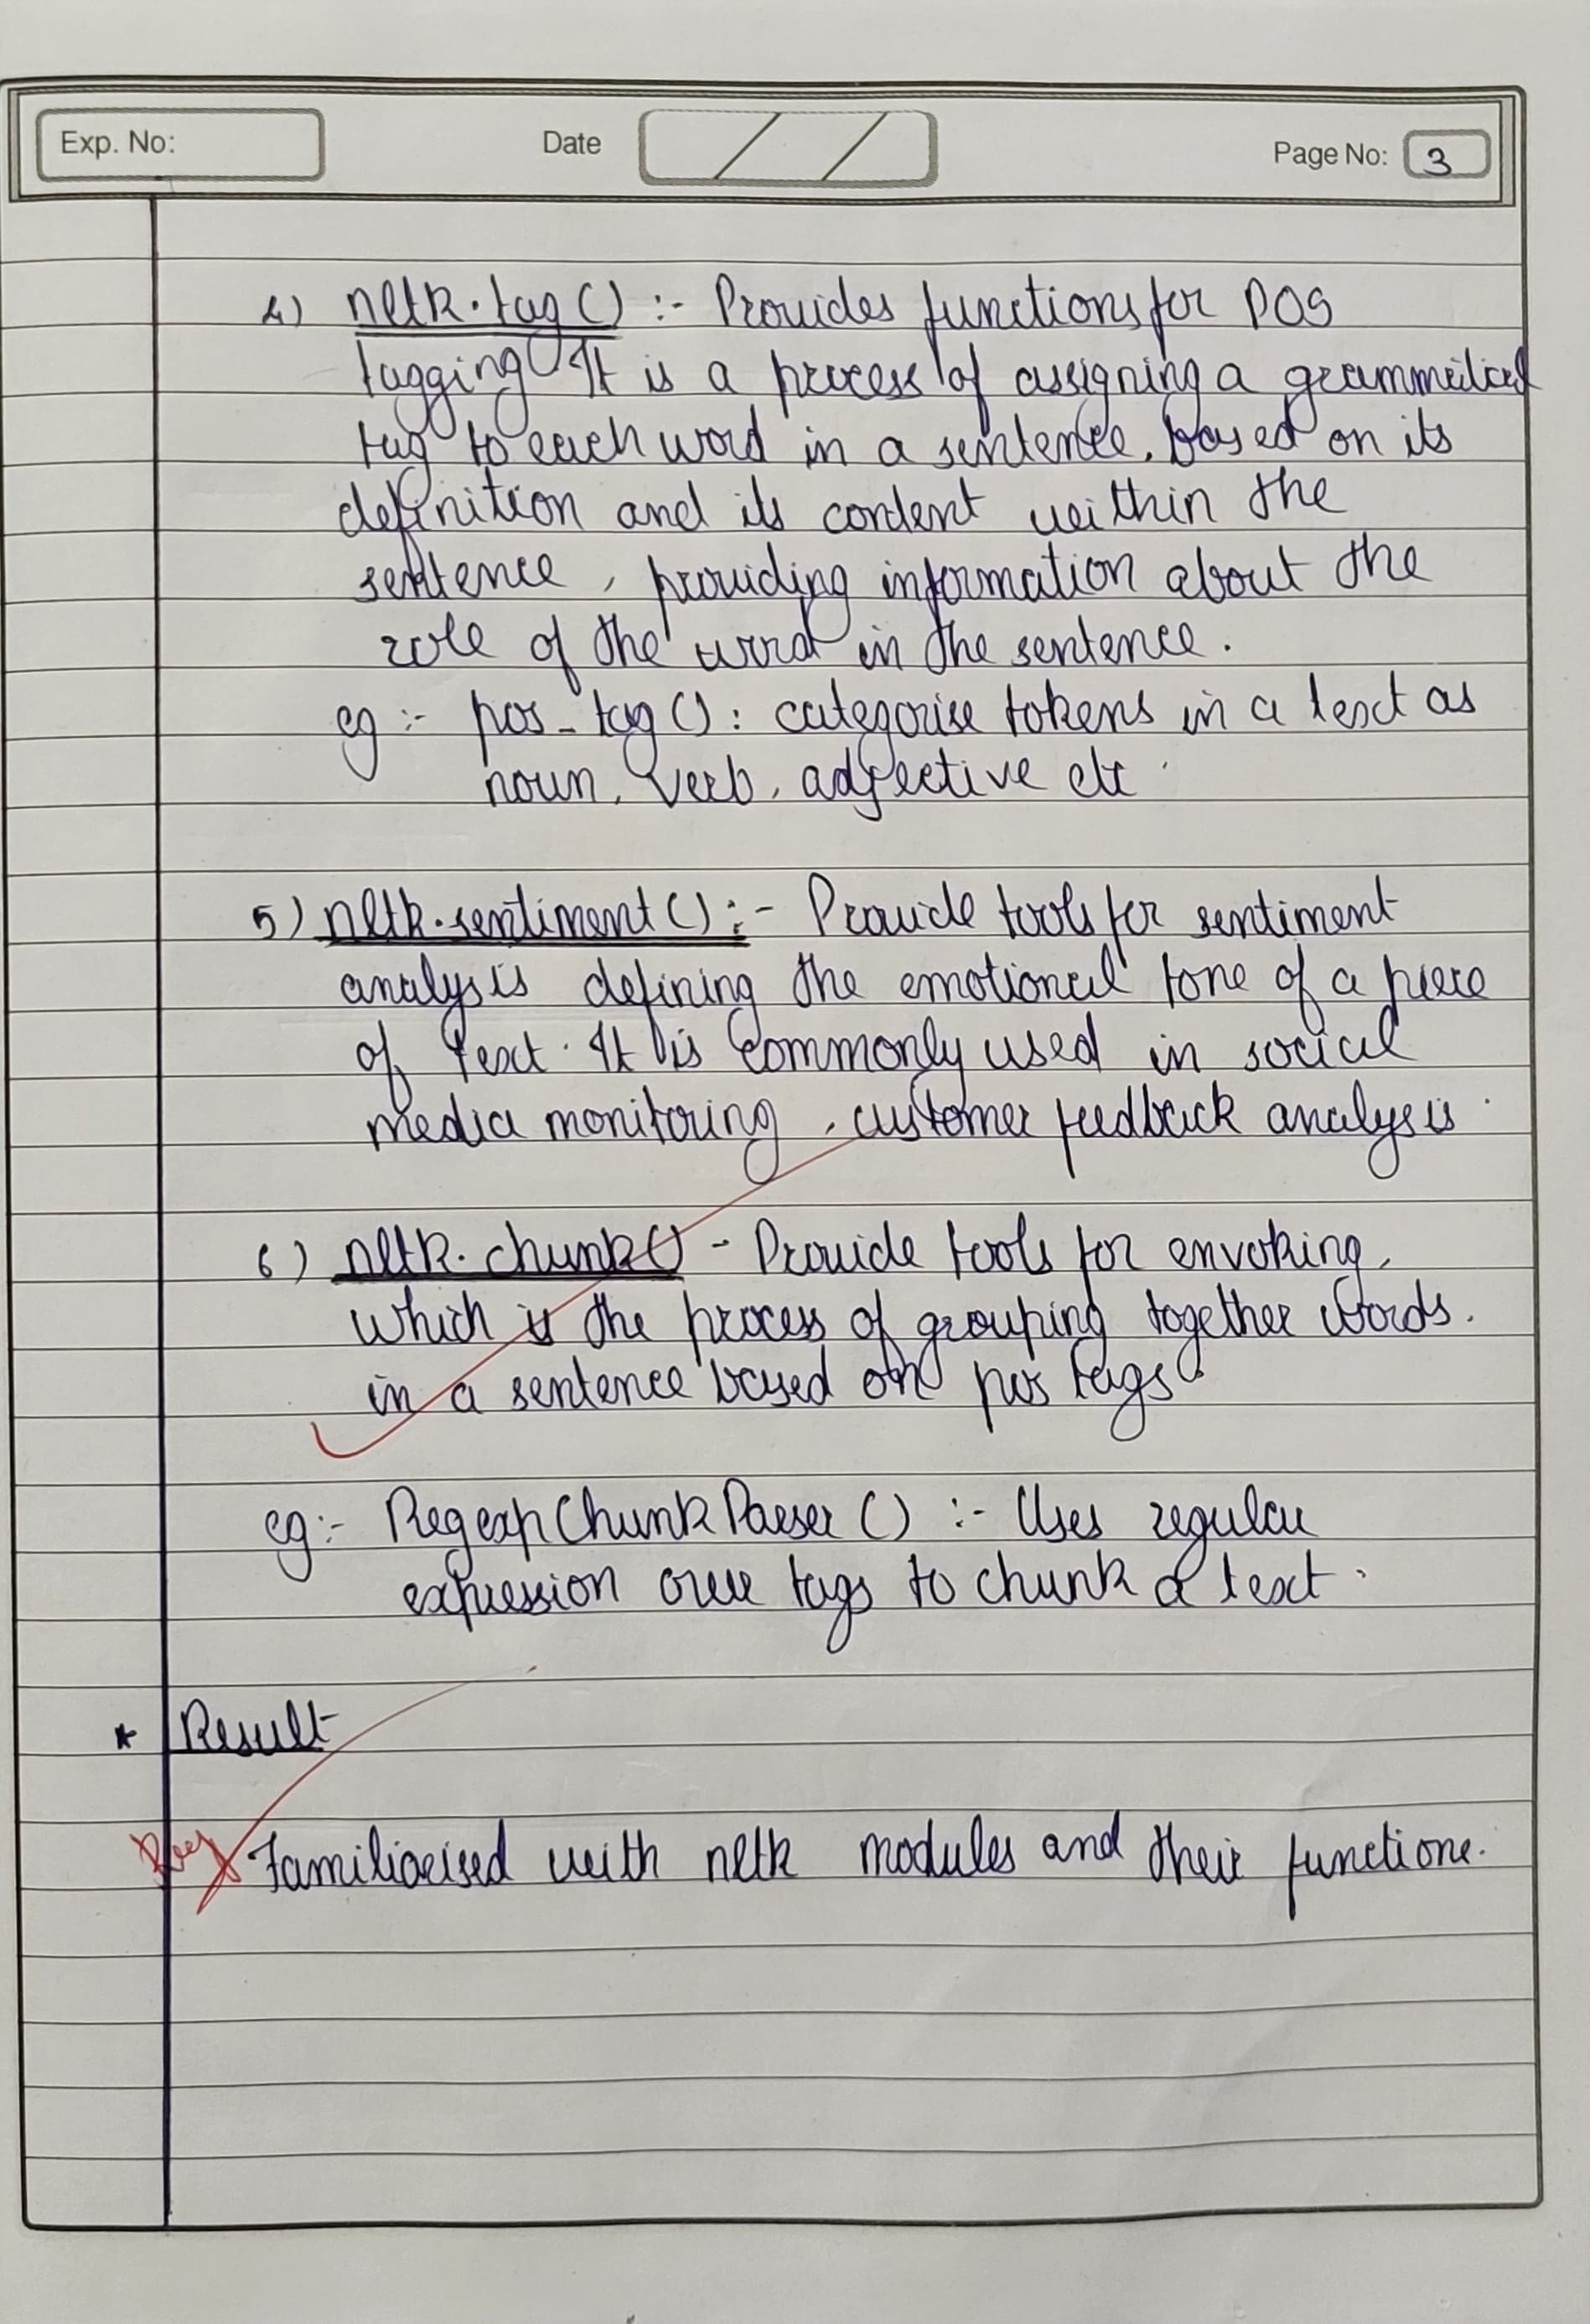 Exp. No:
Date / /
Page No: 3
4) nltk.tag() :- Provides functions for POS
tagging. It is a process of assigning a grammatical
tag to each word in a sentence, based on its
definition and its content within the
sentence, providing information about the
role of the word in the sentence.
eg :- pos_tag() : categorise tokens in a text as
noun, verb, adjective etc.
5) nltk.sentiment() :- Provide tools for sentiment
analysis defining the emotional tone of a piece
of text. It is commonly used in social
media monitoring, customer feedback analysis.
6) nltk.chunk() - Provide tools for envoking,
which is the process of grouping together words.
in a sentence based on pos tags.
eg:- RegexpChunkParser() :- Uses regular
expression over tags to chunk a text.
* Result
Familiarised with nltk modules and their functions.